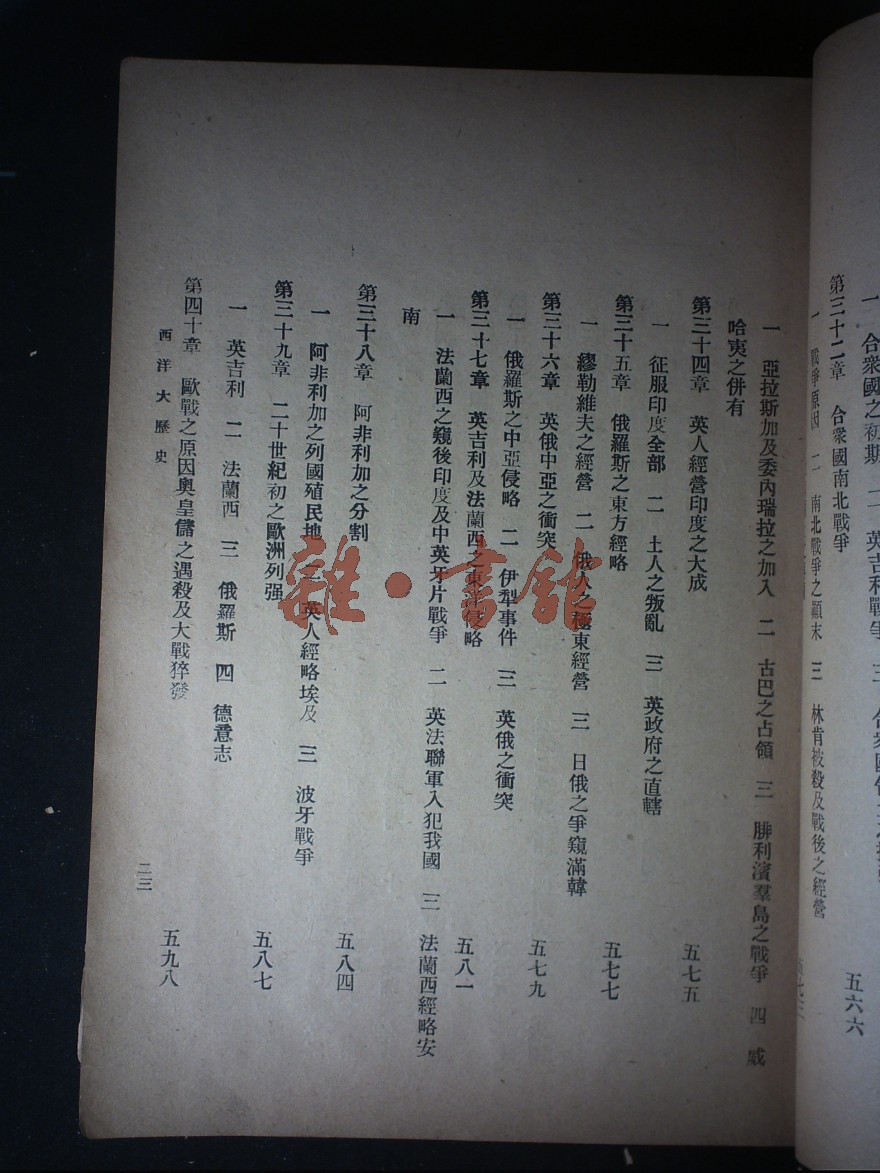 一 合衆國之初期 二 英吉利戰爭 三 合衆國
五六六
第三十二章 合衆國南北戰爭
一 戰爭原因 二 南北戰爭之顚末 三 林肯被殺及戰後之經營
一 亞拉斯加及委內瑞拉之加入 二 古巴之占領 三 腓利濱羣島之戰爭 四 威
哈夷之併有
第三十四章 英人經營印度之大成 五七五
一 征服印度全部 二 土人之叛亂 三 英政府之直轄
第三十五章 俄羅斯之東方經略 五七七
一 繆勒維夫之經營 二 俄人之極東經營 三 日俄之爭窺滿韓
第三十六章 英俄中亞之衝突 五七九
一 俄羅斯之中亞侵略 二 伊犁事件 三 英俄之衝突
第三十七章 英吉利及法蘭西之東洋侵略 五八一
一 法蘭西之窺後印度及中英牙片戰爭 二 英法聯軍入犯我國 三 法蘭西經略安
南
第三十八章 阿非利加之分割 五八四
一 阿非利加之列國殖民地 二 英人經略埃及 三 波牙戰爭
第三十九章 二十世紀初之歐洲列强 五八七
一 英吉利 二 法蘭西 三 俄羅斯 四 德意志
第四十章 歐戰之原因奧皇儲之遇殺及大戰猝發 五九八
西洋大歷史 二三
雜·書館